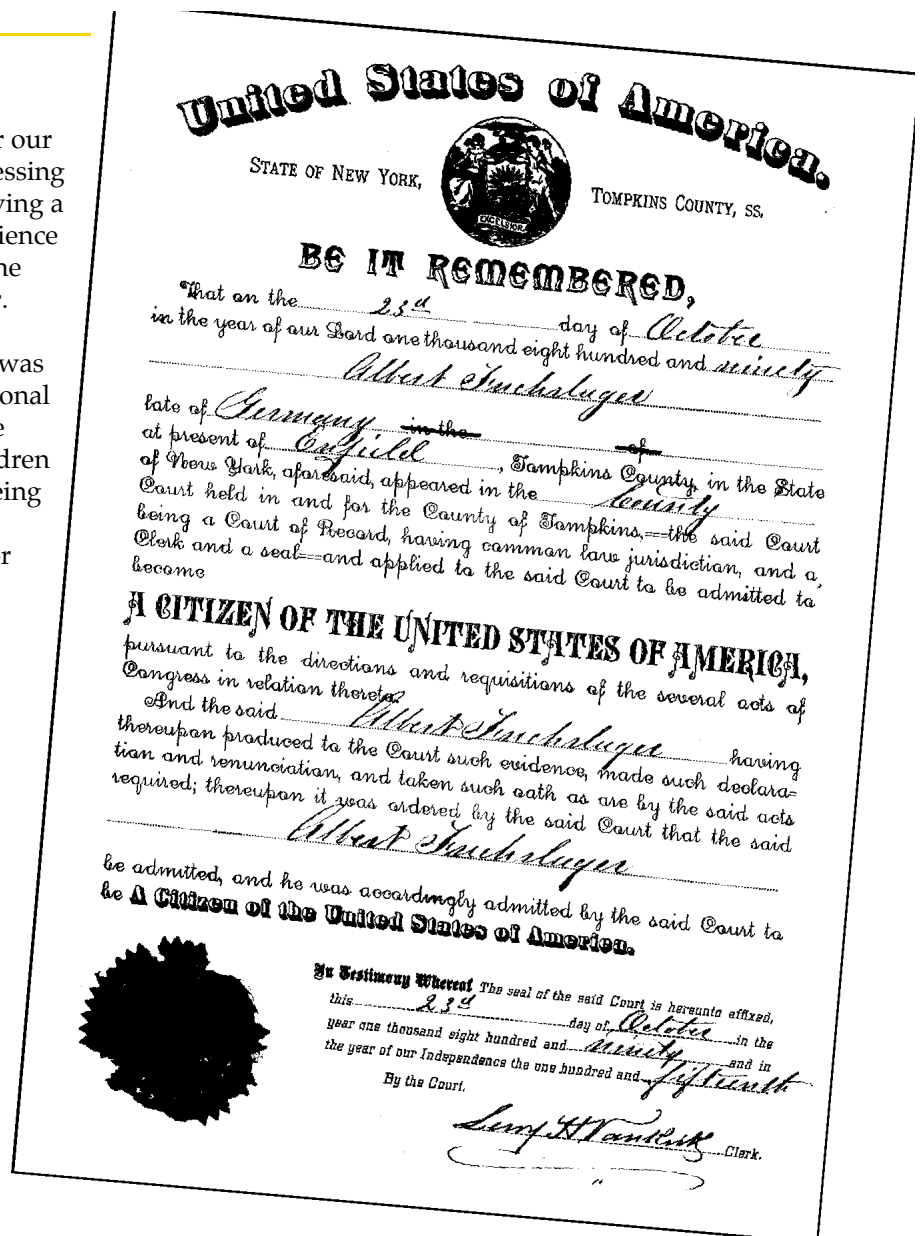 r our
essing
ving a
ience
ne
.
was
onal
e
dren
eing
or
United States of America.
STATE OF NEW YORK,
TOMPKINS COUNTY, SS.
EXCELSIOR
BE IT REMEMBERED,
That on the 23d day of October
in the year of our Lord one thousand eight hundred and ninety
Albert
late of Germany in the of
at present of Enfield, Tompkins County, in the State
of New York, aforesaid, appeared in the County
Court held in and for the County of Tompkins,==the said Court
being a Court of Record, having common law jurisdiction, and a
Clerk and a seal==and applied to the said Court to be admitted to
become
A CITIZEN OF THE UNITED STATES OF AMERICA,
pursuant to the directions and requisitions of the several acts of
Congress in relation thereto.
And the said Albert having
thereupon produced to the Court such evidence, made such declara=
tion and renunciation, and taken such oath as are by the said acts
required; thereupon it was ordered by the said Court that the said
Albert
be admitted, and he was accordingly admitted by the said Court to
be A Citizen of the United States of America.
In Testimony Whereof The seal of the said Court is hereunto affixed,
this 23d day of October in the
year one thousand eight hundred and ninety and in
the year of our Independence the one hundred and fifteenth
By the Court.
H VanKirk Clerk.